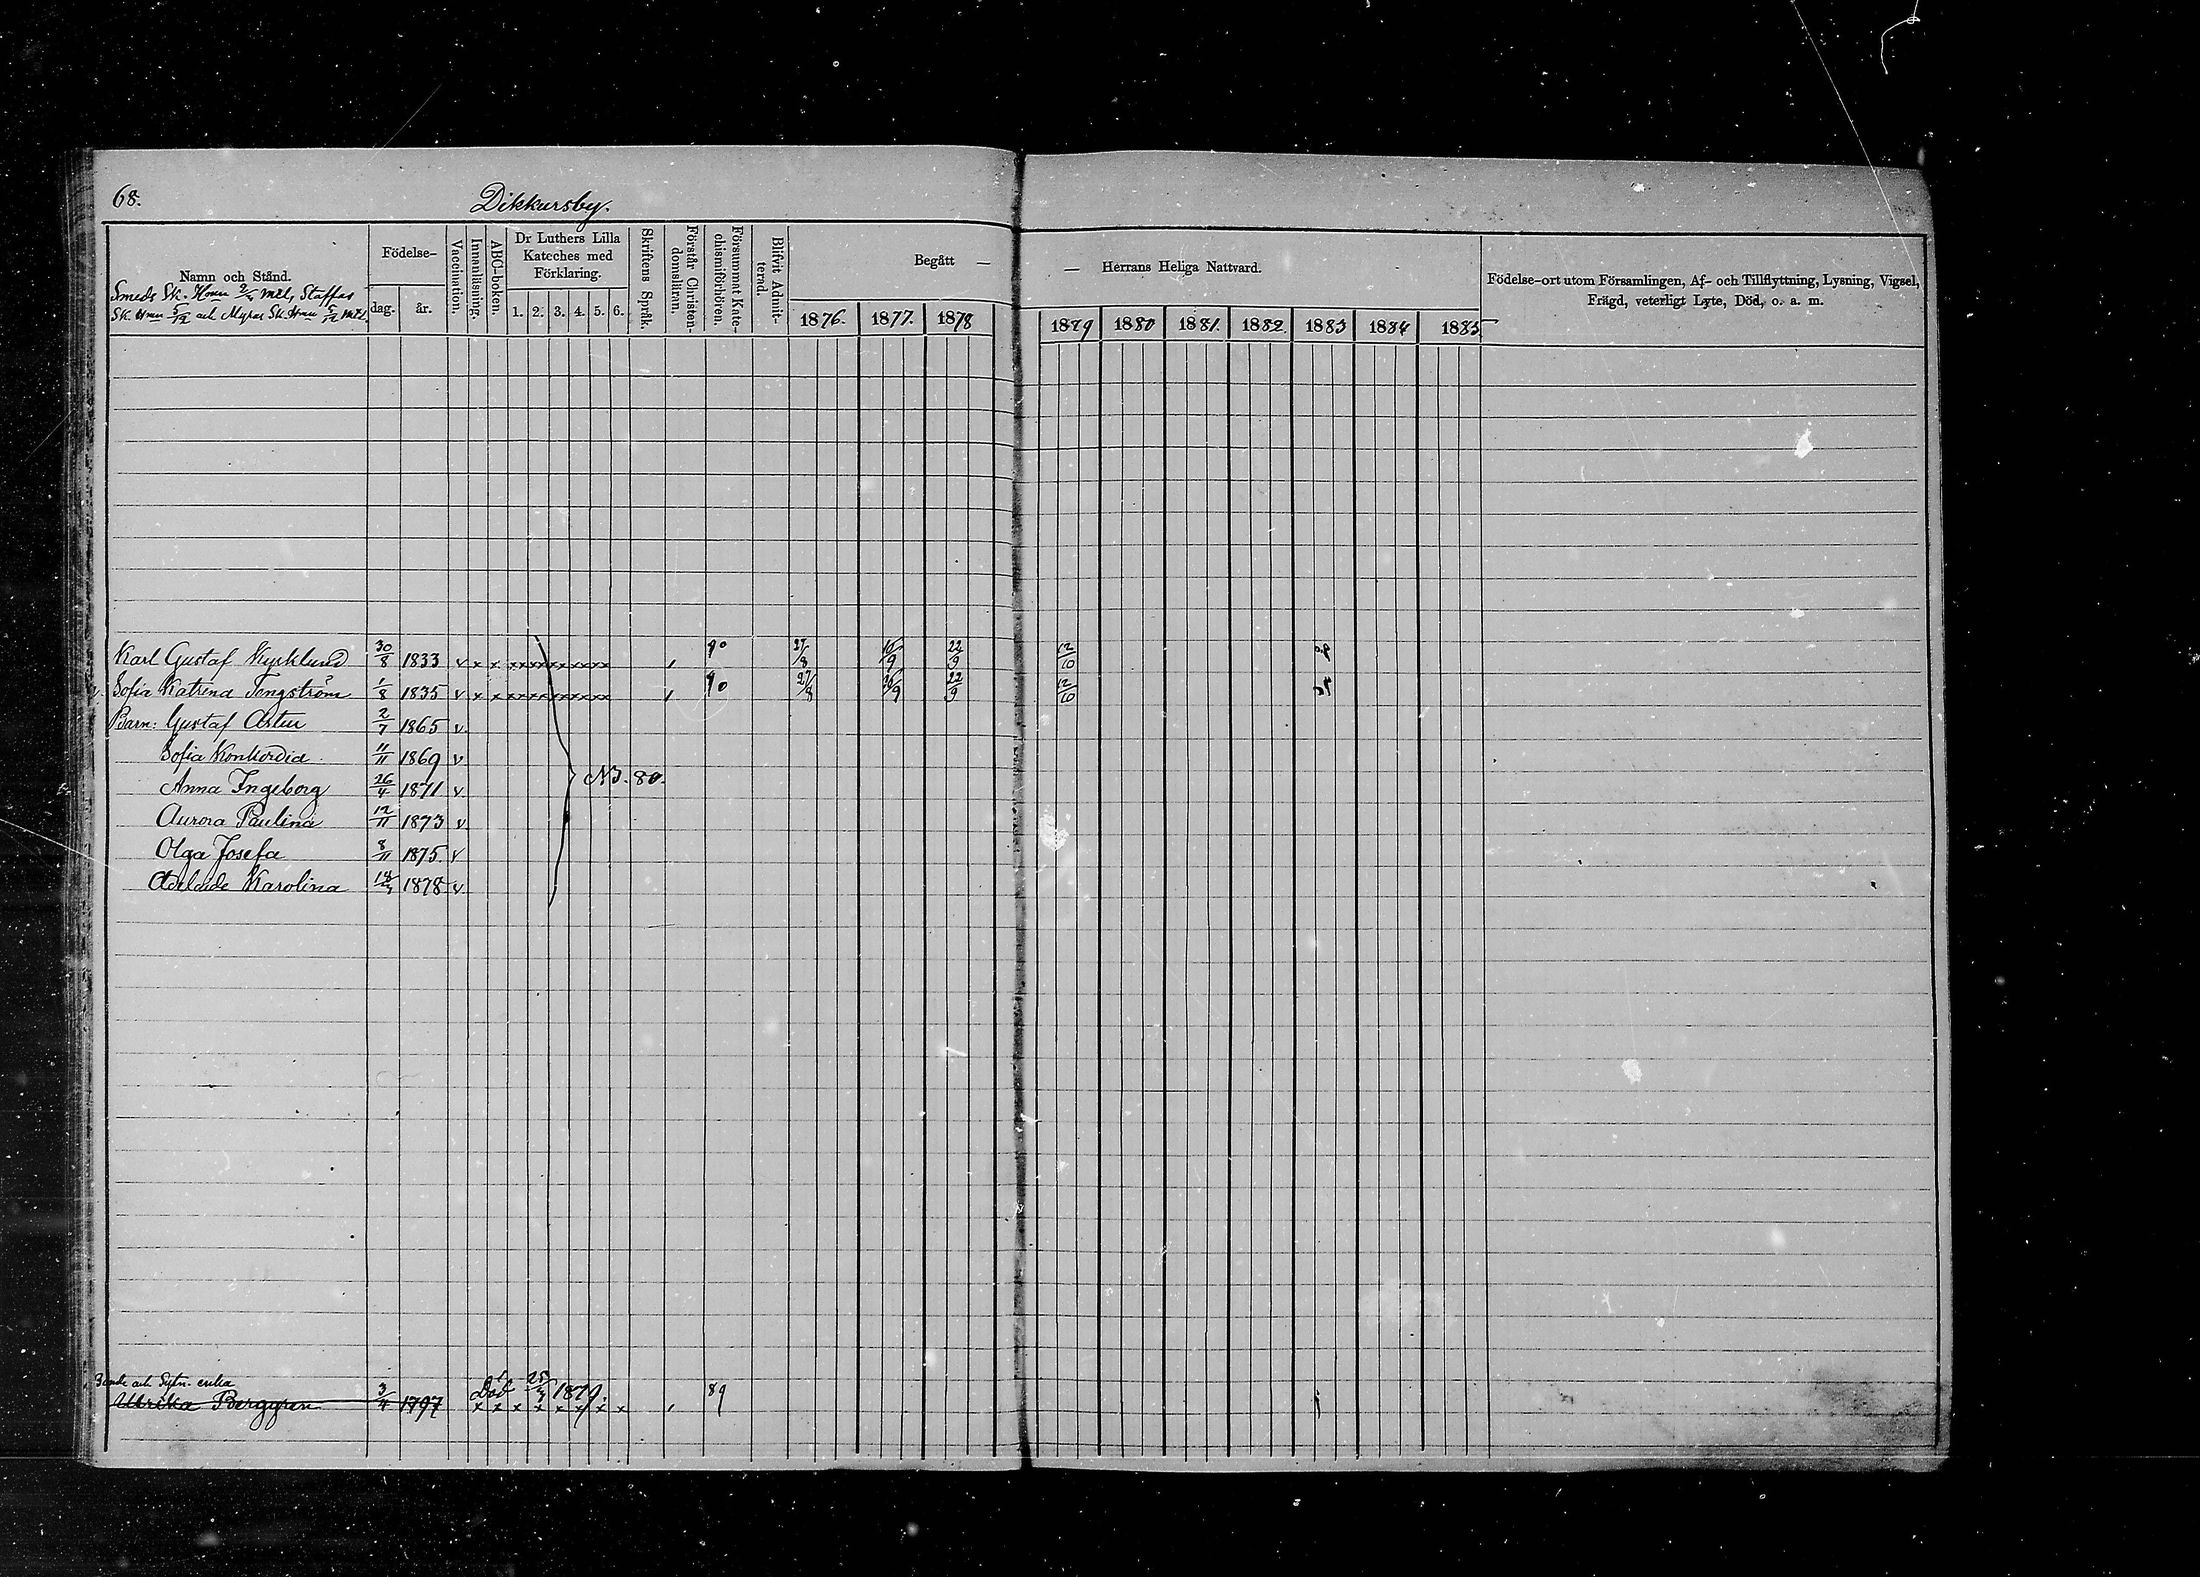 68.
Dikkursby.
Namn och Stånd.
Smeds Sk. Hemn 2/3 mtl, Staffas
Sk. Hmn 5/12 och Myras Sk. Hmn 5/12 mtl.
Födelse-
dag. år.
Vaccination.
Innanläsning.
ABC-boken.
Dr Luthers Lilla
Kateches med
Förklaring.
1. 2. 3. 4. 5. 6.
Skriftens Språk.
Förstår Christen-
domsläran.
Försummat Kate-
chismiförhören.
Blifvit Admit-
terad.
Begått —
1876. 1877. 1878
— Herrans Heliga Nattvard.
1879 1880 1881. 1882. 1883 1884 1885
Födelse-ort utom Församlingen, Af- och Tillflyttning, Lysning, Vigsel,
Frägd, veterligt Lyte, Död, o. a. m.
Karl Gustaf Kycklund 30/8 1833 v x x xxxxxxxxxxx , 90 27/8 16/9 22/9 12/10
Sofia Katrina Tengström 1/8 1835 v x x xxxxxxxxxxx , 90 27/8 16/9 22/9 12/10
Barn: Gustaf Artur 2/7 1865 v.
Sofia Konkordia 11/11 1869 v
Anna Ingeborg 26/4 1871 v. N3. 80.
Aurora Paulina 12/11 1873 v.
Olga Josefa 8/11 1875 v
Adelaide Karolina 1878 v.
och Sytn. enka
Ulrika Berggren 3/4 1797 x x x x x x x x , 89
Död 1879.